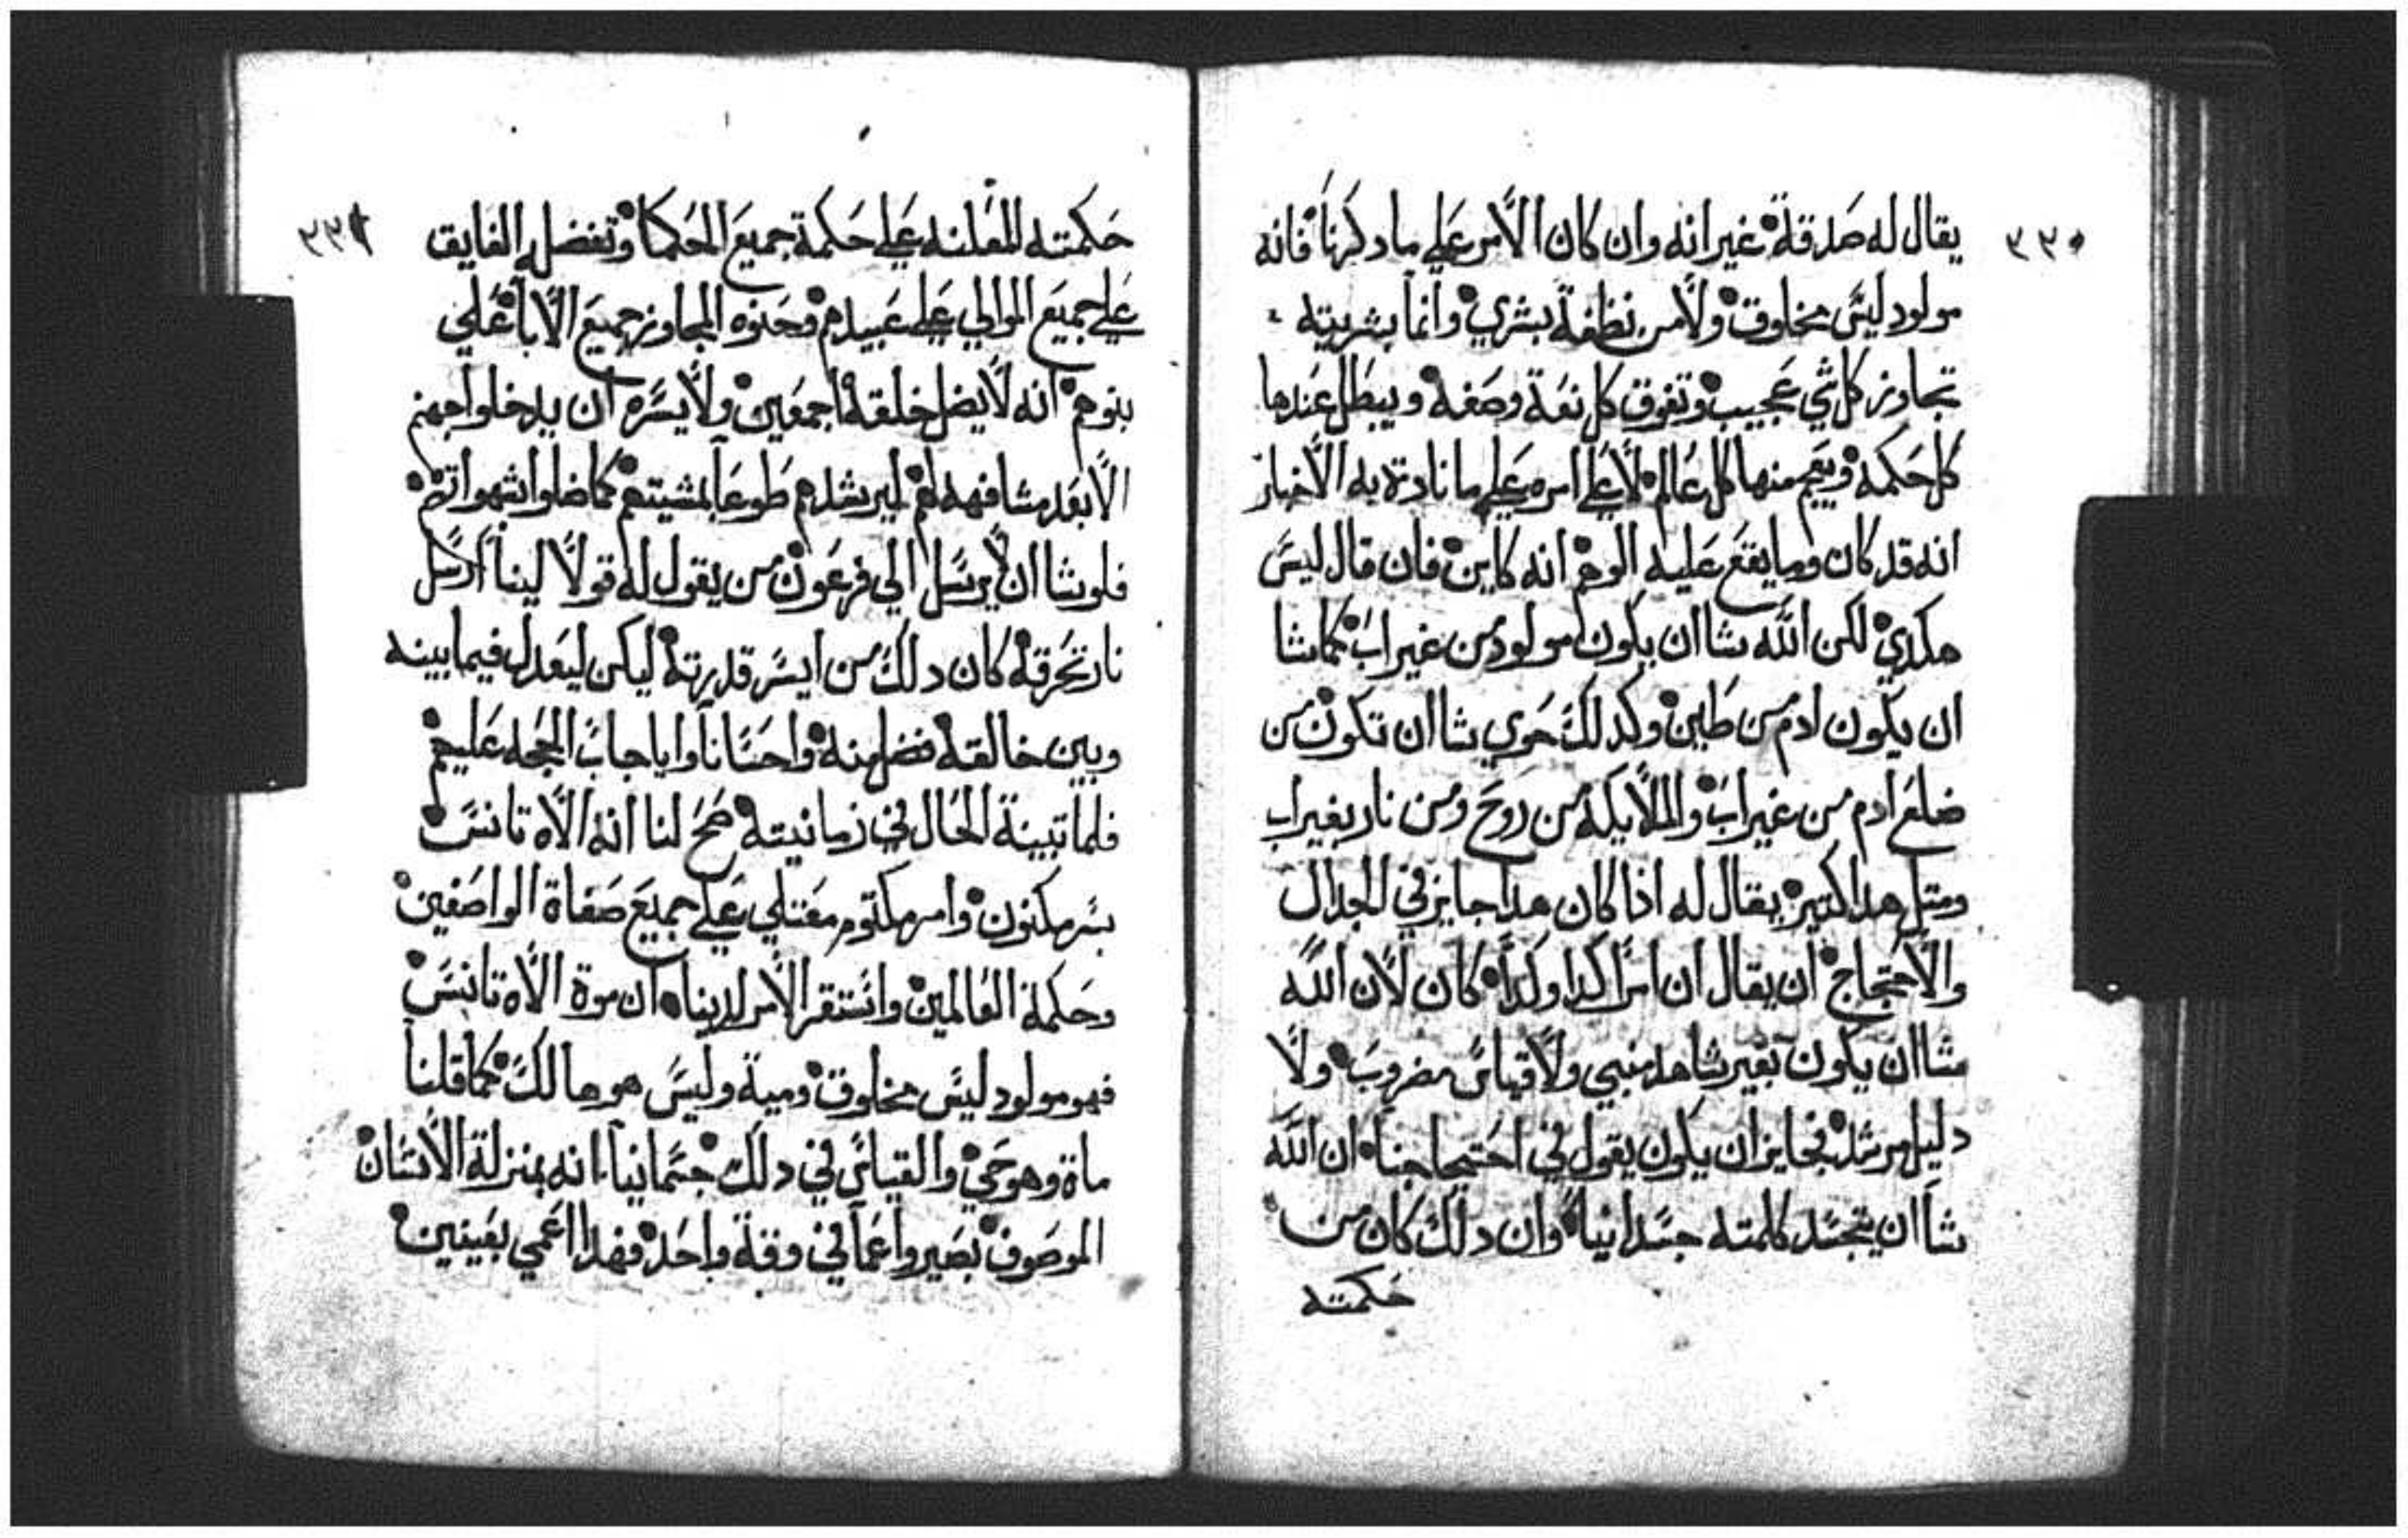 ٣٣٠
يقال له صدقة غير انه وان كان الأمر علي ما دكرنا فانه
مولود ليس مخلوق ولا من نطفة بشري وانما بشريته
تجاوز كل شي عجيب وتفوق كل نعة وصفه ويبطل عندها
كل حكمه ويتعجم منها كل عالم لا علي امره علي ما نادة به الأخبار
انه قد كان وما يقع عليه الوهم انه كاين فان قال ليس
هكدي لكن الله شا ان يكون مولود من غير اب كما شا
ان يكون ادم من طين وكدلك حوي شا ان تكون من
ضلع ادم من غير اب والملايكه من روح ومن نار بغير اب
ومتل هدا كتير يقال له اذا كان هدا جايز في الجدال
والأحتجاج ان يقال ان امرا كدا وكدا كان لأن الله
شا ان يكون بغير شاهد منبي ولا قياس مضروب ولا
دليل مرشد فجايز ان يكون يقول في احتيجاجنا ان الله
شا ان يتجسد كلمته جسدانيا وان دلك كان من
حكمته
٣٣١
حكمته المعلنه علي حكمة جميع الحكما وتفضله الفايق
علي جميع الموالي علي عبيدهم وحنوه المجاوز جميع الأبا علي
بنوهم انه لا يضل خلقه اجمعين ولا يسره ان يدخلوا جهنم
الا بعد مشافهه لهم ليرشدهم طوعا بمشيتهم كما ضلوا بشهواتهم
فلو شا ان يرسل الي فرعون من يقول له قولا لينا ارسل
نار تحرقه كان دلك من ايسر قدرته ليكن ليعدل فيما بينه
وبين خالقه فضل منه واحسانا وايا جاب الحجه عليهم
فلما تبينة الحال في زمانيته صح لنا انه الأه تانس
بسر مكنون وامر مكتوم معتلي علي جميع صفاة الواصفين
وحكمة العالمين واستقر الأمر لدينا ان موة الأه تانس
فهو مولود ليس مخلوق ومية وليس هو هالك كما قلنا
ماة وهو حي والقياس في دلك جسمانيا انه بمنزلة الأنسان
الموصوف بصير واعما في وقة واحد فهدا اعمي بعينين